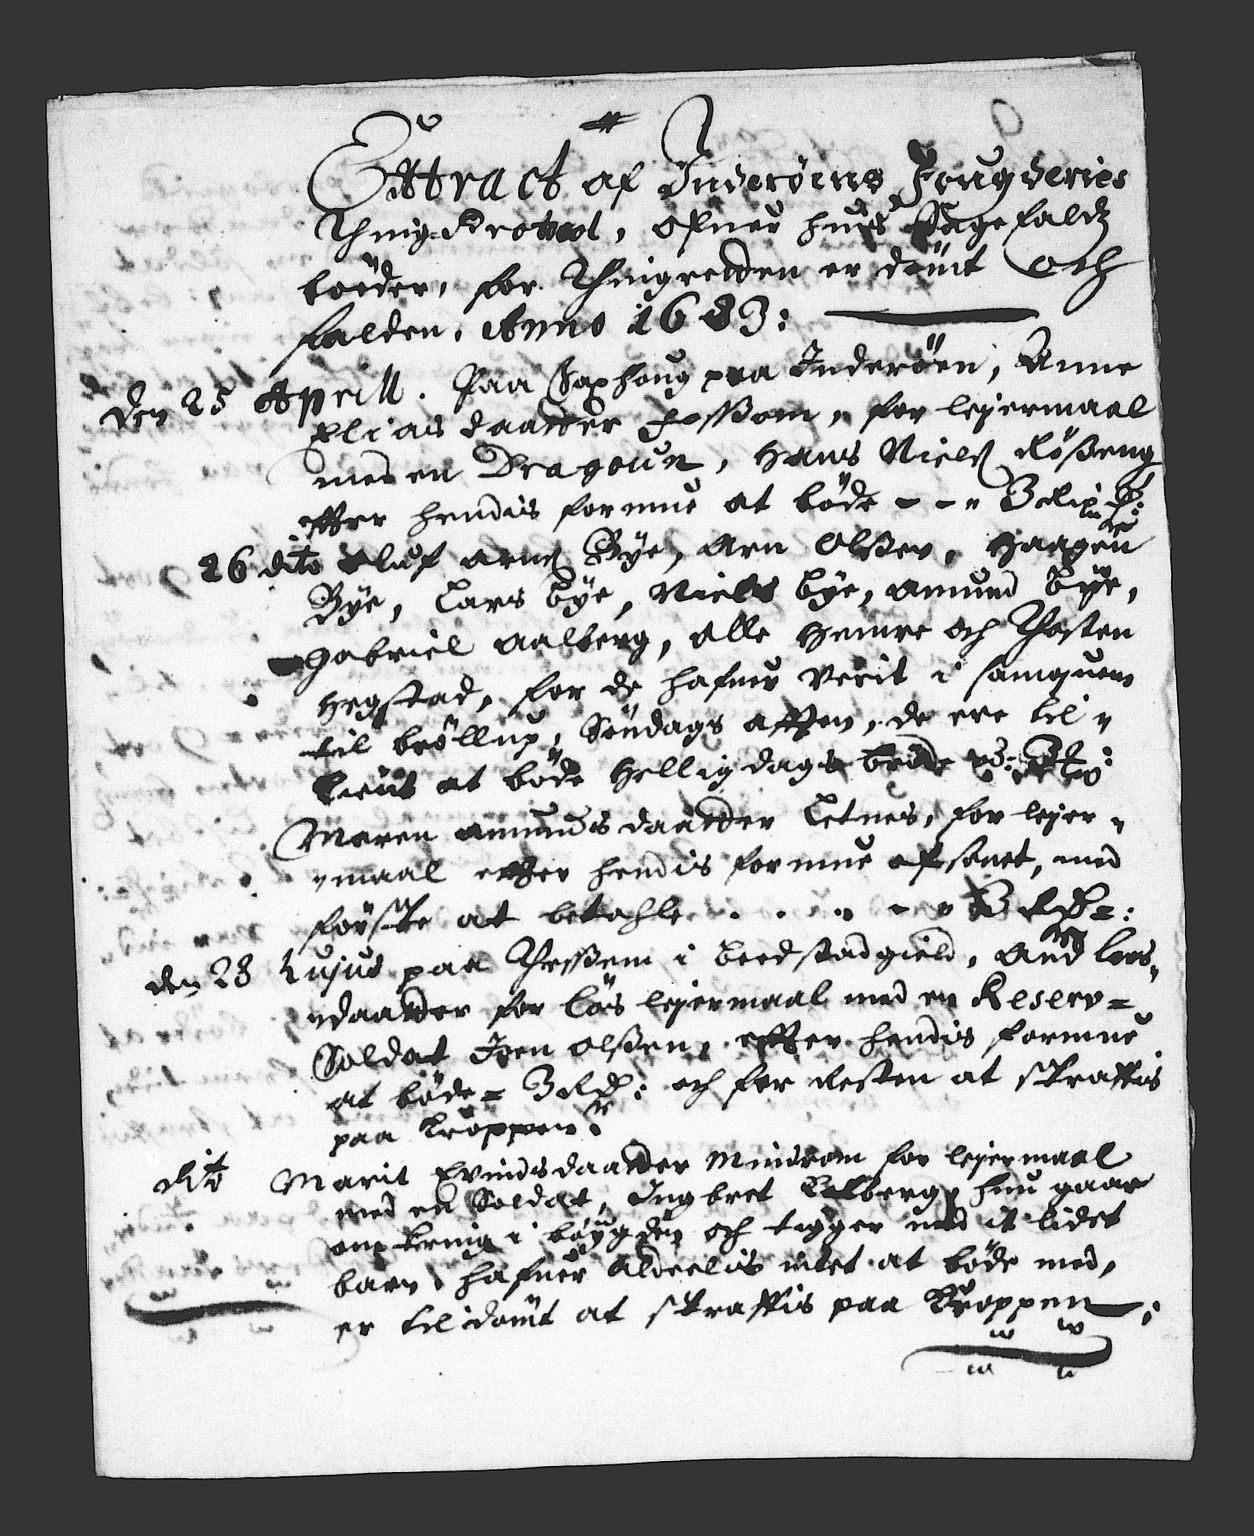 Exttract af Inderøens Fougderies
Thing Protocol, ofuer huis Sagefalds
böeder, for Thingretten er dömt och
falden, Anno 1683:
den 25 Aprill. Paa Saxhoug paa Inderöen, Anne
Eliasdaatter Fossom, for leyermaal
med en Dragoun, Hans Niels Rößeng
effter hendis formue at böde - - - 3 Rixd:
26 dito Oluf Arns Bye, Arn Olßen, Haagen
Bye, Lars Bye, Niels bye, Amund bye,
Gabriel Aalberg, Olle Hemre och Thosten
Hegstad, for de hafuer verit i samquem
til bröllup, Söndags afften, de ere til-
kient at böde Helligdags bröde
Maren Amundsdaatter Letnes, for leyer-
maal effter hendis formue afsonet, med
föyste at betahle . . . . - - 3 Rd:
den 28 hujus paa Theßem i Beedstadgield, And Lars-
daatter for löes leyermaal med en Reserv-
Soldat Joen Olßen, effter hendis formue
at böde - 3 Rd: och for resten at straffis
paa Kroppen:
dito Marit Evindsdaatter Mindrom for leyermaal
med en Soldat, Ingbret Kalberg, hun gaar
omkring i böygden och tigger med it lidet
barn, hafuer Aldeelis intet at böde med,
er tildömt at straffis paa Kroppen: